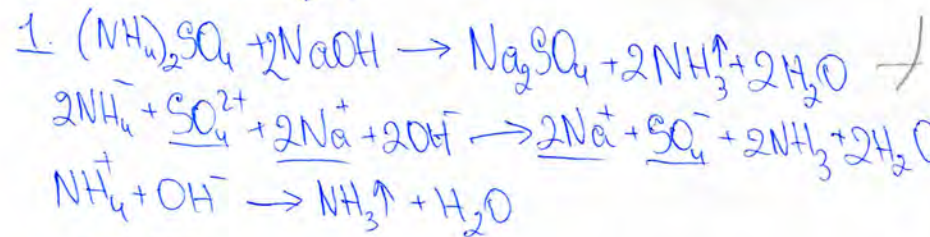 1. (NH₄)₂SO₄ + 2NaOH → Na₂SO₄ + 2NH₃↑ + 2H₂O
2NH₄⁻ + SO₄²⁺ + 2Na⁺ + 2OH⁻ → 2Na⁺ + SO₄⁻ + 2NH₃ + 2H₂O
NH₄⁺ + OH⁻ → NH₃↑ + H₂O